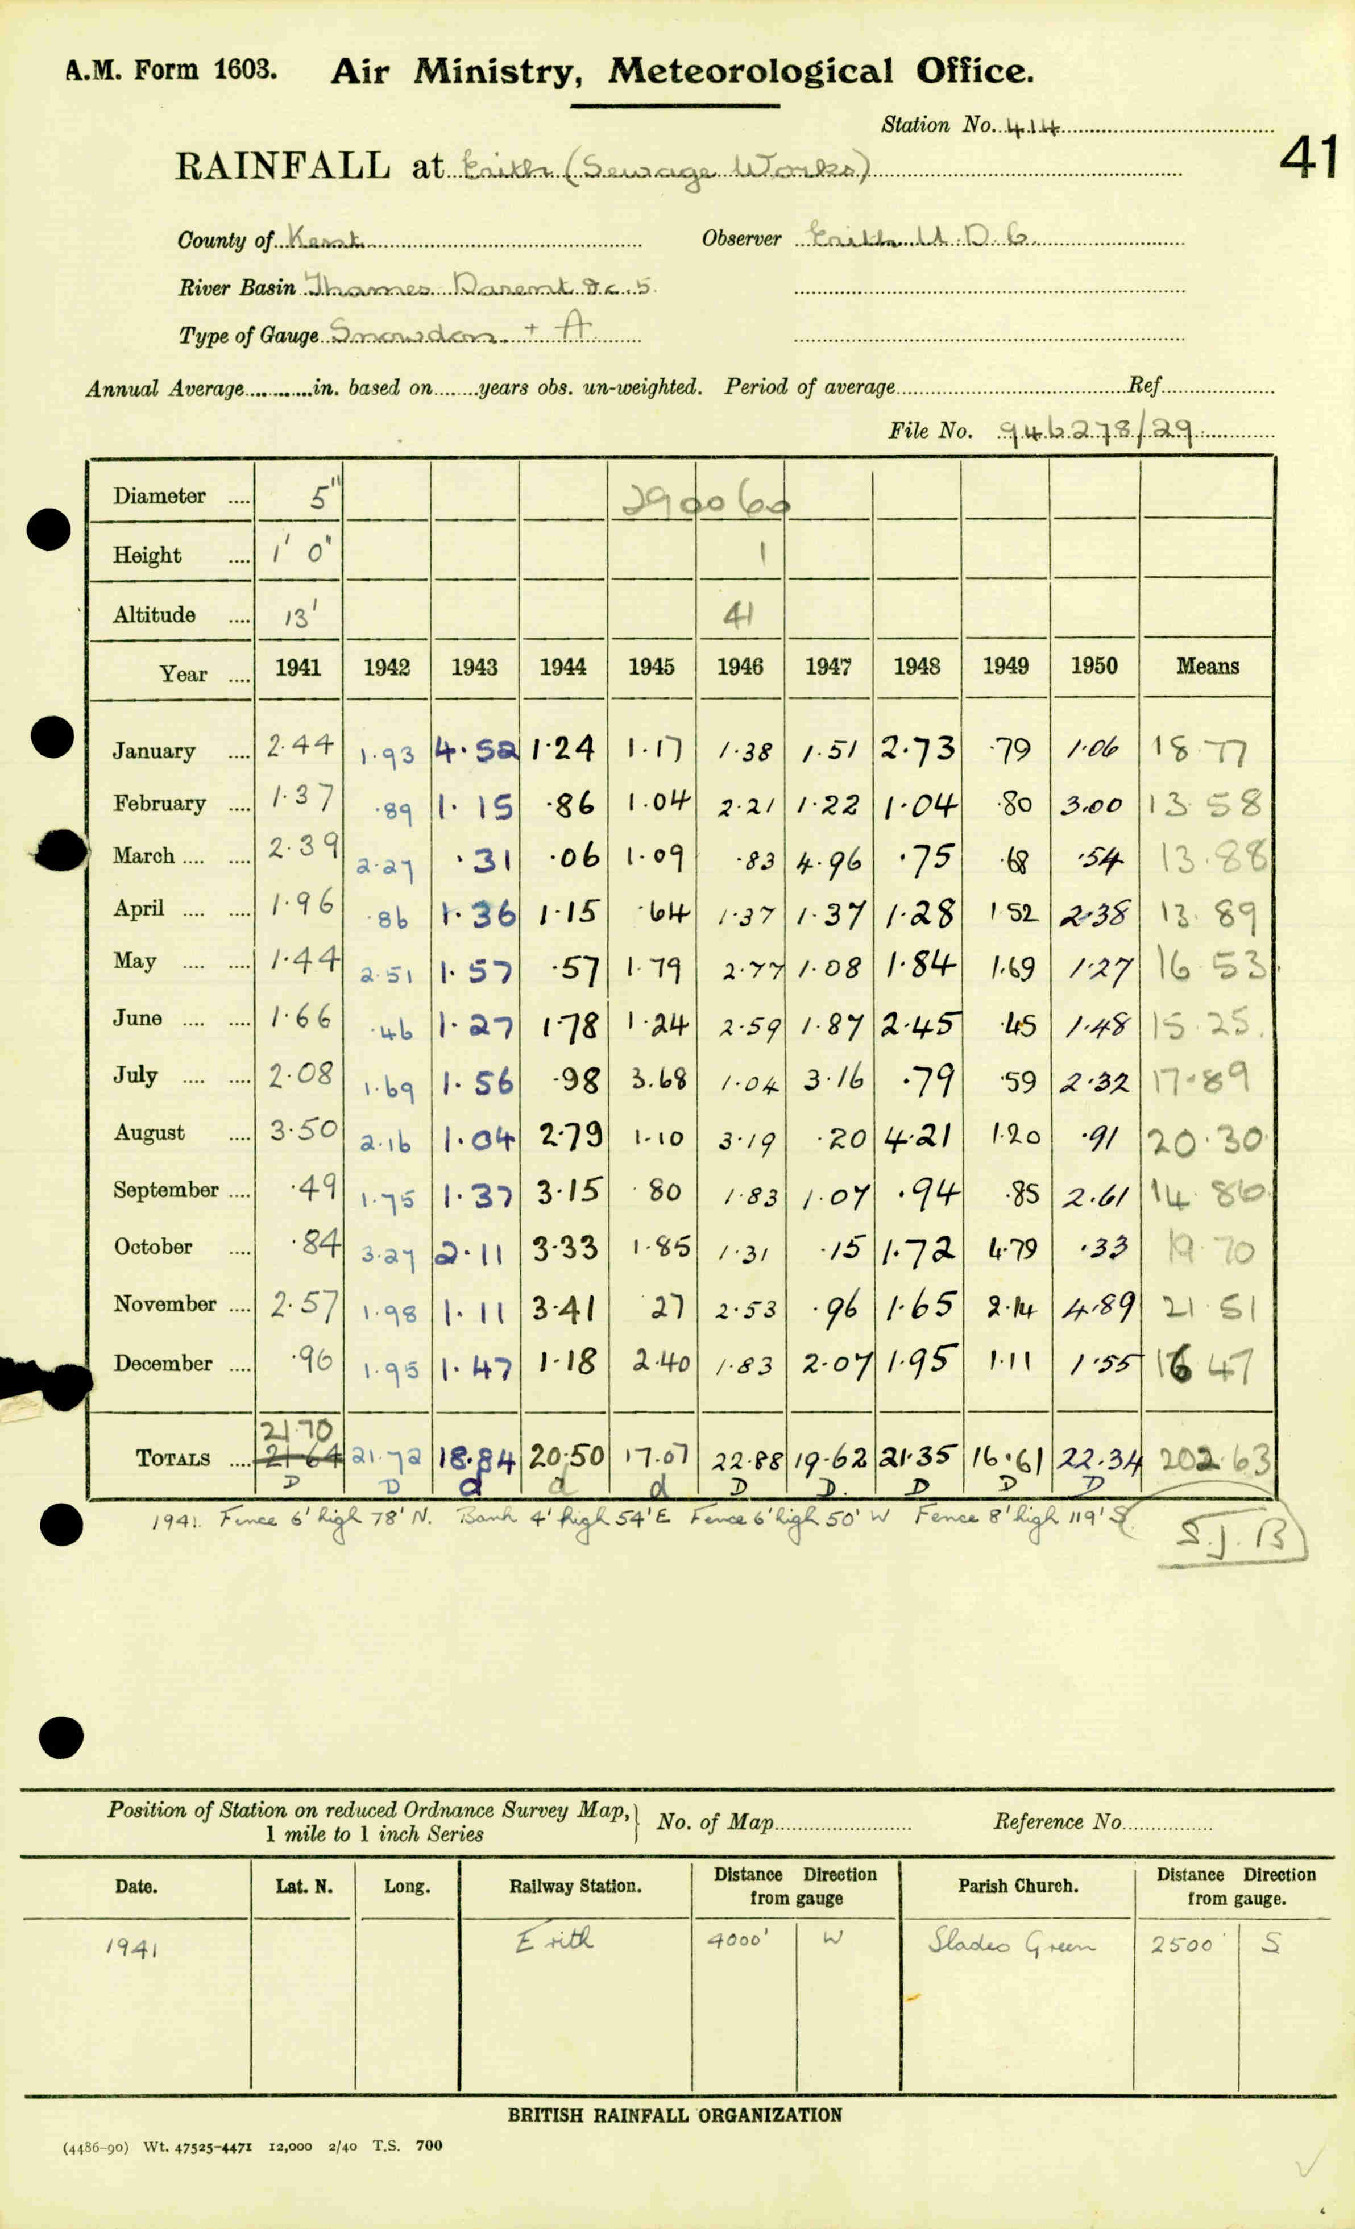 A.M. Form 1603. Air Ministry, Meteorological Office.
Station No. 414
41
RAINFALL at Erith (Sewage Works)
County of Kent Observer Erith U.D.C.
River Basin Thames Darent &c. 5
Type of Gauge Snowdon + A
Annual Average............in. based on........years obs. un-weighted. Period of average............Ref............
File No. 946278/29
Diameter .... 5" 290060
Height .... 1' 0" 1
Altitude .... 13' 41
Year .... 1941 1942 1943 1944 1945 1946 1947 1948 1949 1950 Means
January .... 2.44 1.93 4.52 1.24 1.17 1.38 1.51 2.73 .79 1.06 18 77
February .... 1.37 .89 1.15 .86 1.04 2.21 1.22 1.04 .80 3.00 13 58
March .... .... 2.39 2.27 .31 .06 1.09 .83 4.96 .75 .68 .54 13.88
April .... .... 1.96 .86 1.36 1.15 .64 1.37 1.37 1.28 1.52 2.38 13.89
May .... .... 1.44 2.51 1.57 .57 1.79 2.77 1.08 1.84 1.69 1.27 16 53
June .... .... 1.66 .46 1.27 1.78 1.24 2.59 1.87 2.45 .45 1.48 15.25
July .... .... 2.08 1.69 1.56 .98 3.68 1.04 3.16 .79 .59 2.32 17.89
August .... 3.50 2.16 1.04 2.79 1.10 3.19 .20 4.21 1.20 .91 20.30
September .... .49 1.75 1.37 3.15 .80 1.83 1.07 .94 .85 2.61 14 86
October .... .84 3.27 2.11 3.33 1.85 1.31 .15 1.72 4.79 .33 19.70
November .... 2.57 1.98 1.11 3.41 .27 2.53 .96 1.65 2.14 4.89 21.51
December .... .96 1.95 1.47 1.18 2.40 1.83 2.07 1.95 1.11 1.55 16 47
21.70
TOTALS .... 21 64 21.72 18.84 20.50 17.07 22.88 19.62 21.35 16.61 22.34 202.63
D D d d d D D. D D D
1941. Fence 6' high 78' N. Bank 4' high 54' E Fence 6' high 50' W Fence 8' high 119' S
S.J.B
Position of Station on reduced Ordnance Survey Map, No. of Map............ Reference No............
1 mile to 1 inch Series
Date. Lat. N. Long. Railway Station. Distance Direction from gauge Parish Church. Distance Direction from gauge.
1941 Erith 4000' W Slades Green 2500' S
BRITISH RAINFALL ORGANIZATION
(4486-90) Wt. 47525-4471 12,000 2/40 T.S. 700